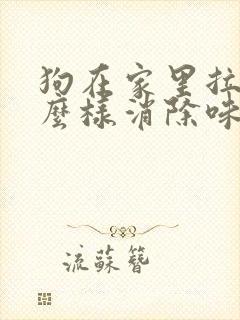 狗在家里拉
麼樣消除味
流蘇簪